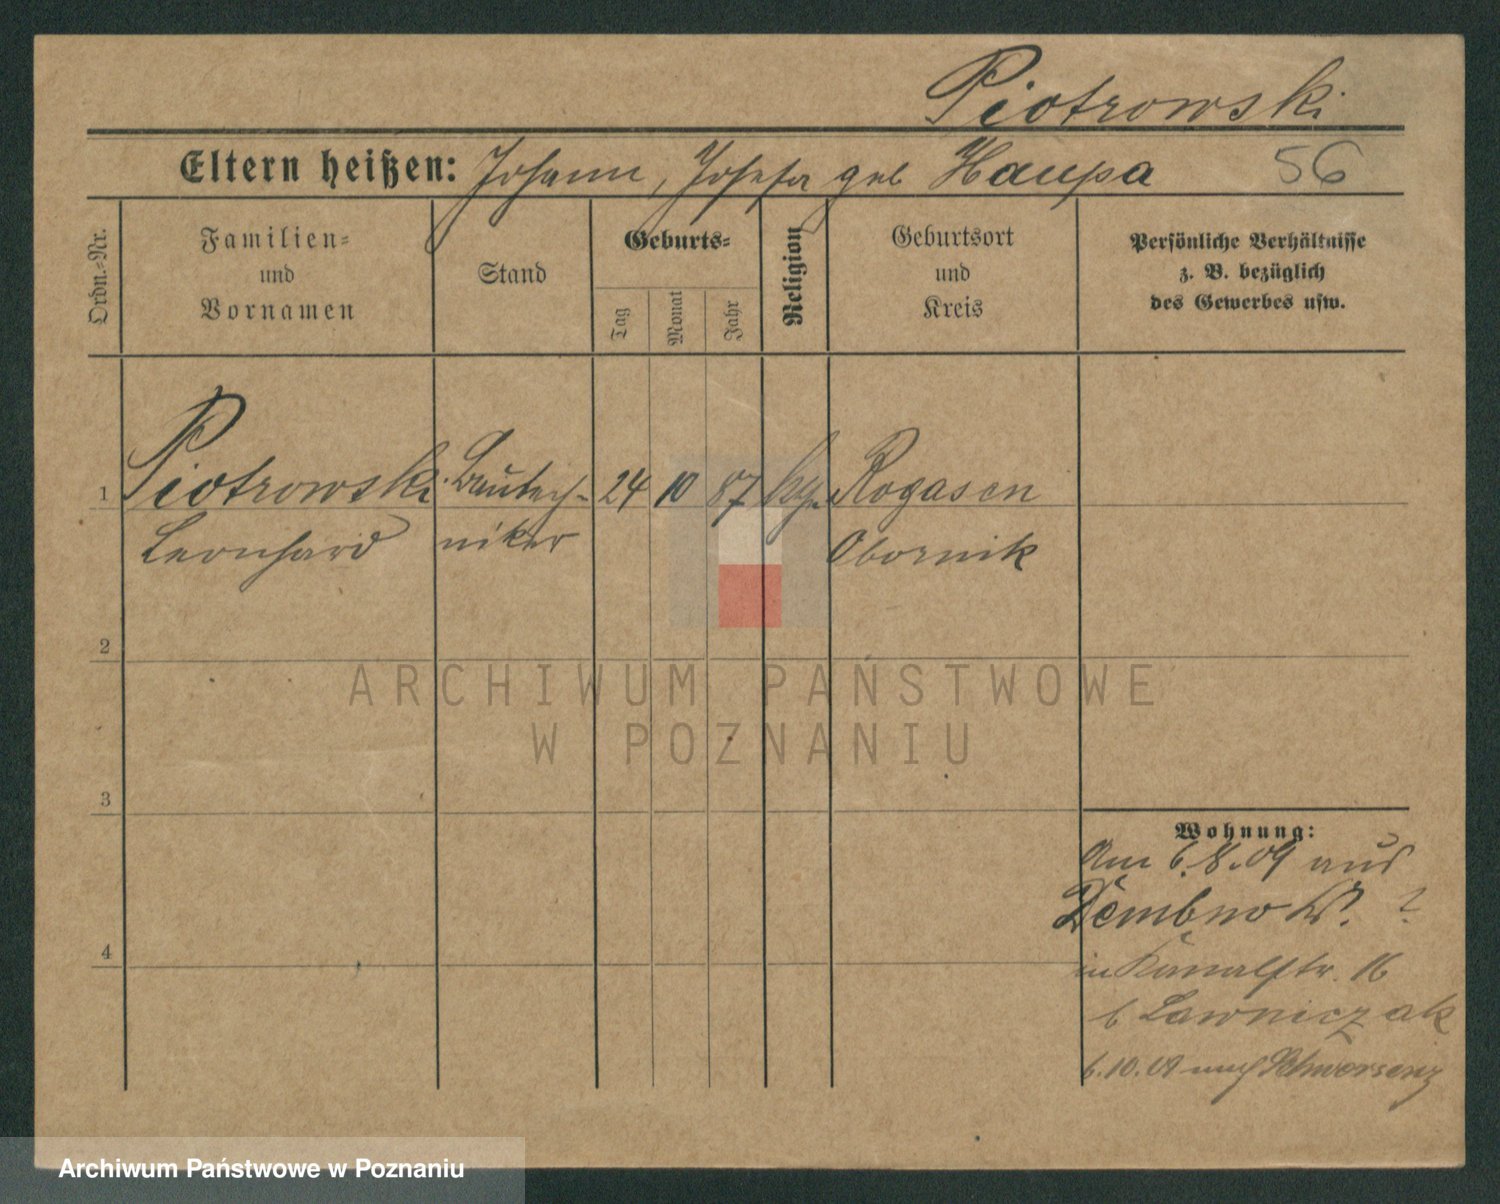 Piotrowski
Eltern heißen: Johann, Josefa geb Haupa
56
Ordn.-Nr.
Familien-
und
Vornamen
Stand
Geburts-
Tag
Monat
Jahr
Religion
Geburtsort
und
Kreis
Persönliche Verhältnisse
z. B. bezüglich
des Gewerbes usw.
1 Piotrowski Bautech- 24 10 87 Rogasen
Leonhard niker Obornik
2
3
4
Wohnung:
Am 6.8.09 aus
Dembno ?
in Kanalstr. 16
b Lawniczak
6.10.09 nach Schwersenz
ARCHIWUM PAŃSTWOWE
W POZNANIU
Archiwum Państwowe w Poznaniu